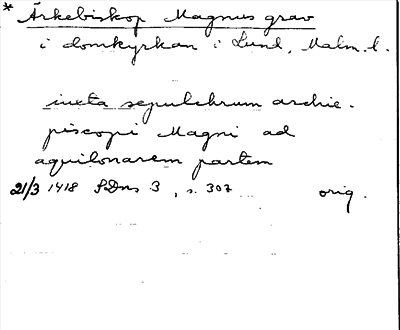 * Ärkebiskop Magnus grav
i domkyrkan i Lund, Malm. l.
iuxta sepulchrum archie-
piscopi Magni ad
aquilonarem partem
21/3 1418 SDns 3, s. 307 orig.